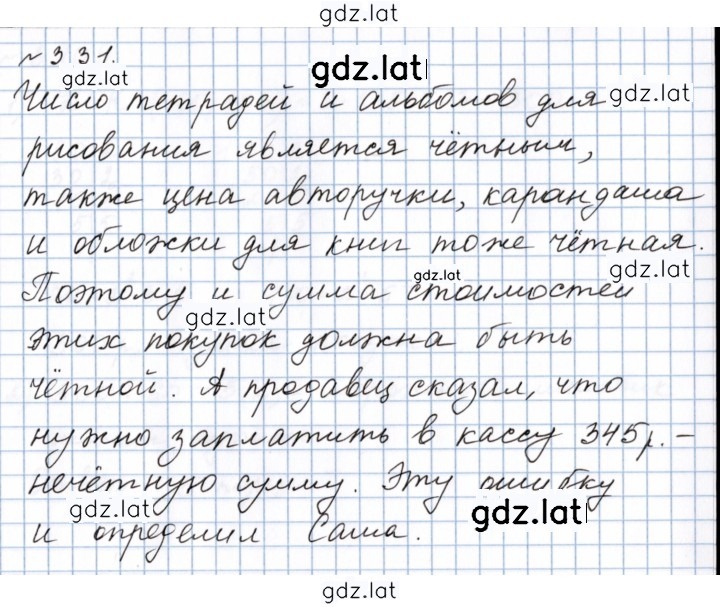 gdz.lat
№331.
gdz.lat
gdz.lat
Число тетрадей и альбомов для gdz.lat
рисования является чётным,
также цена авторучки, карандаша
и обложки для книг тоже чётная.
gdz.lat
gdz.lat
Поэтому и сумма стоимостей
gdz.lat
этих покупок должна быть
чётной. А продавец сказал, что
нужно заплатить в кассу 345р. –
нечётную сумму. Эту ошибку
gdz.lat
gdz.lat
и определил Саша.
gdz.lat